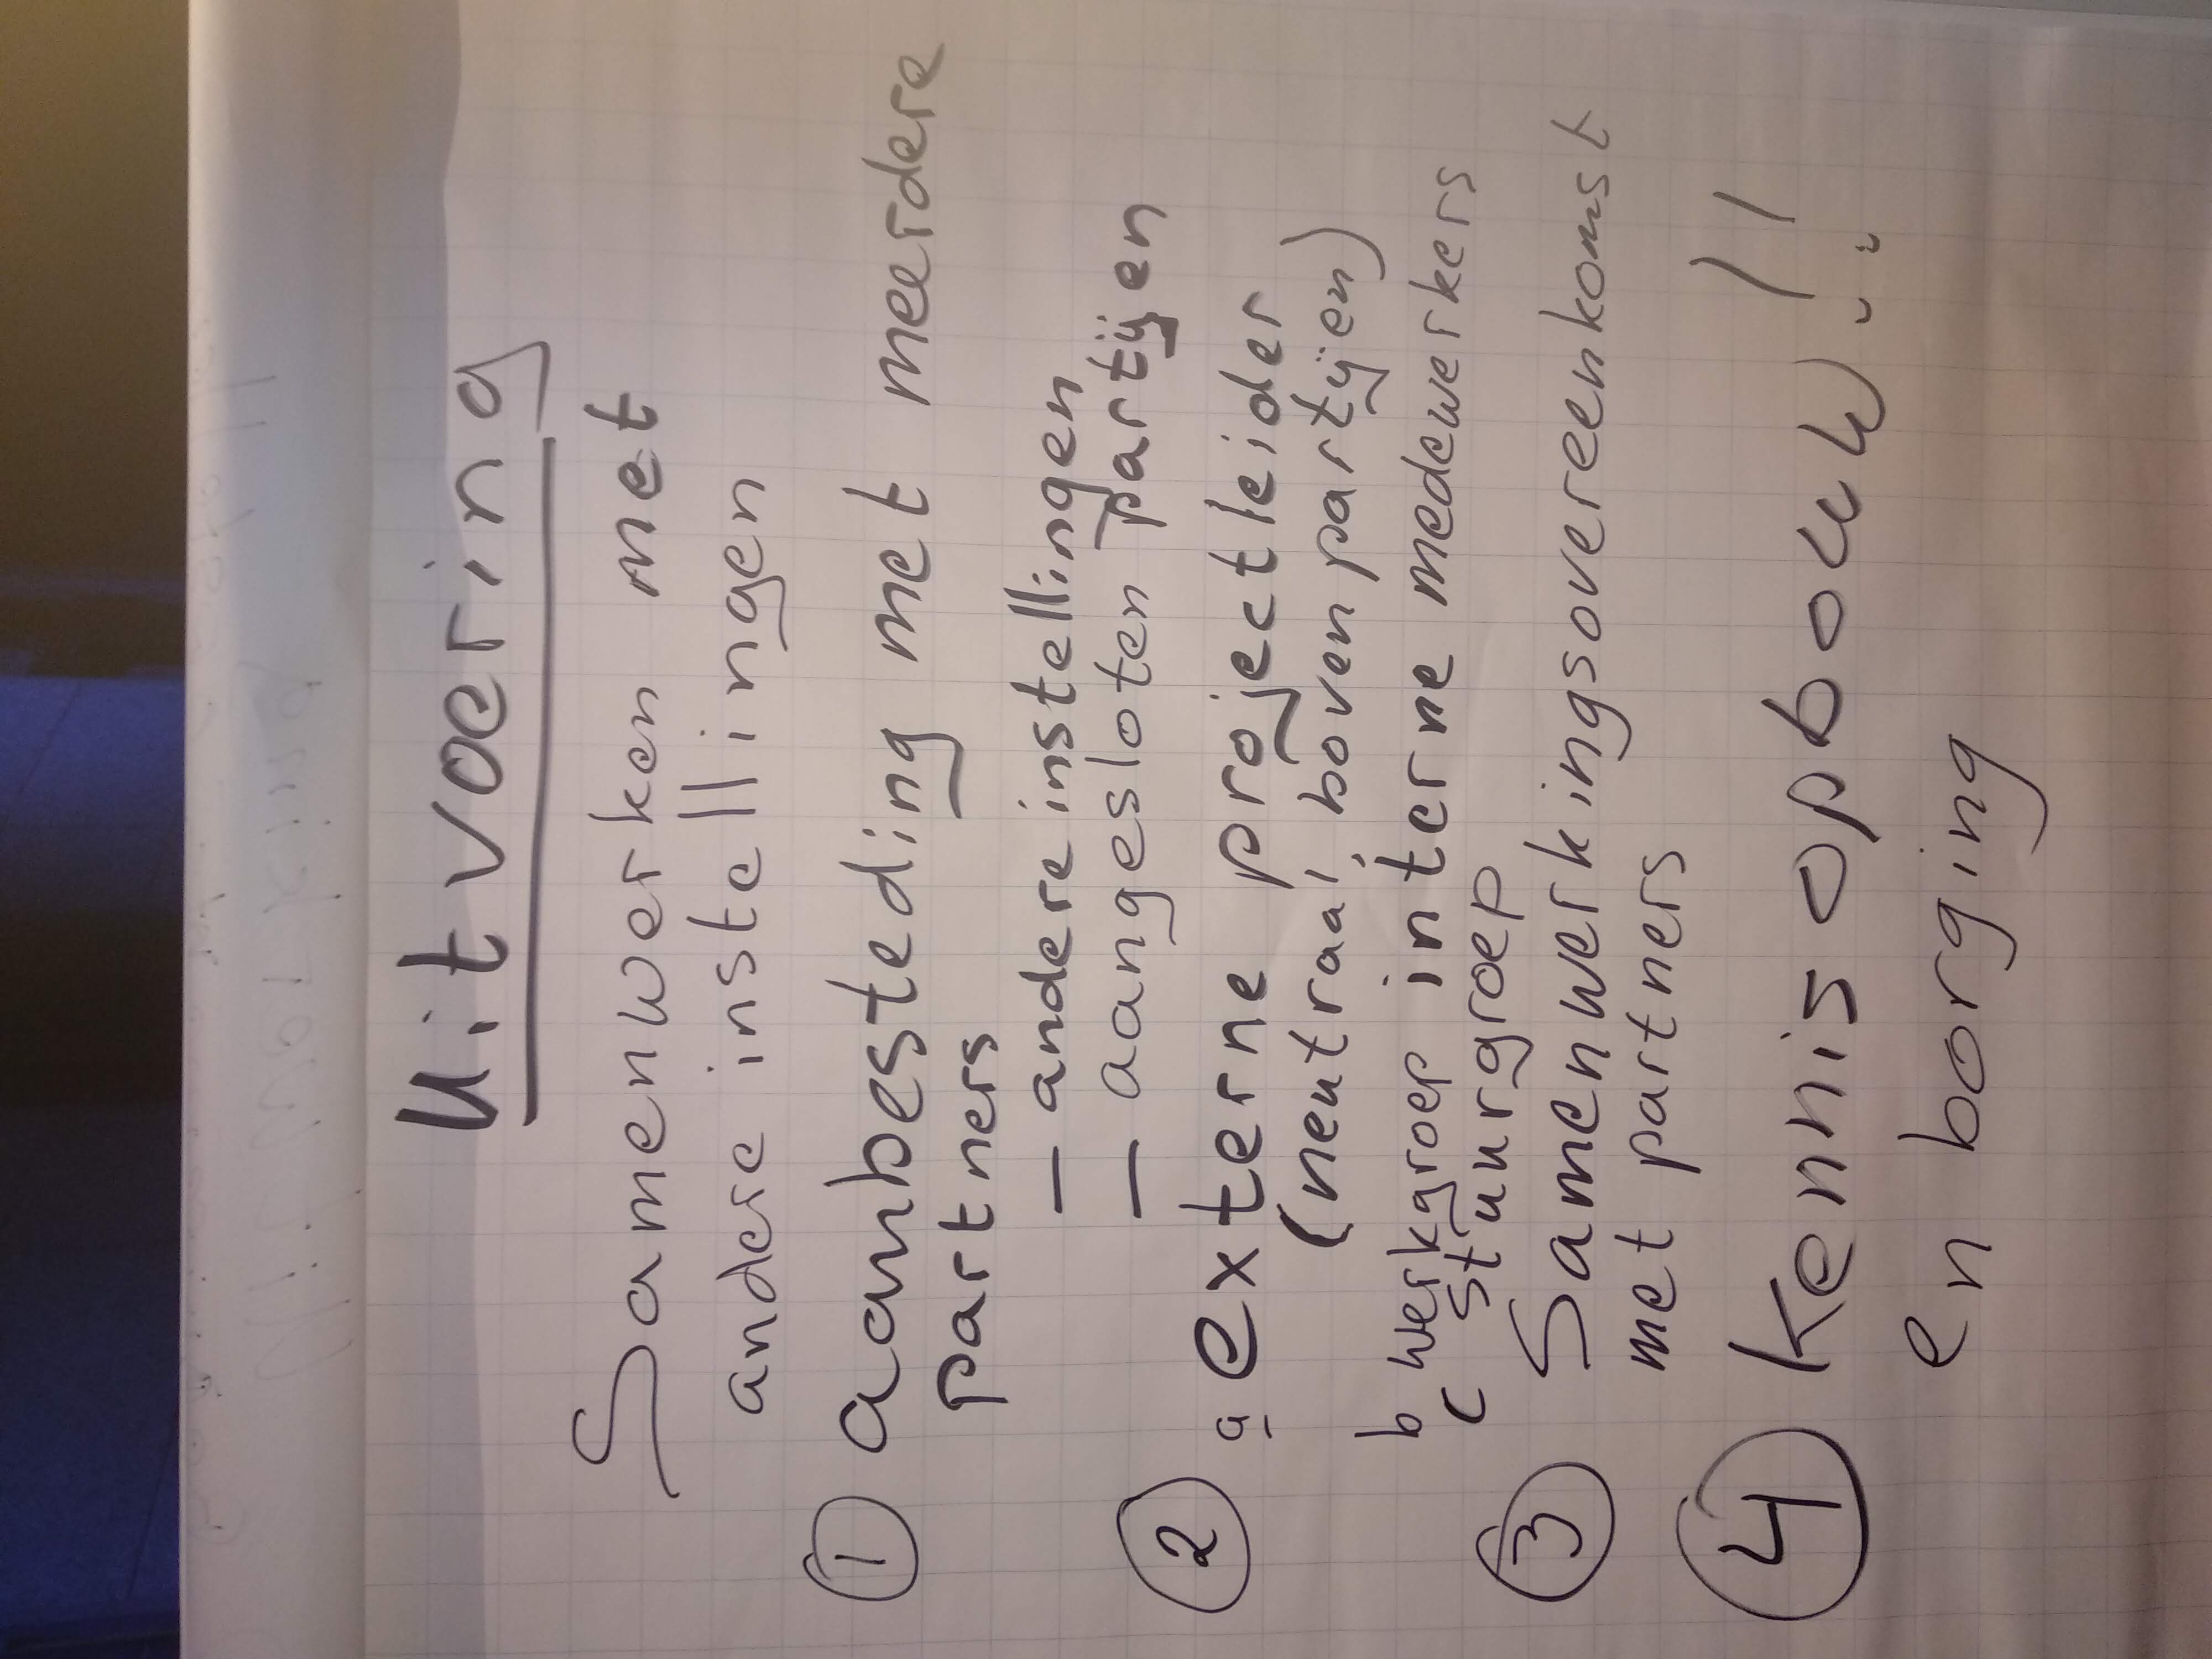 Uitvoering
Samenwerken met
andere instellingen
① aanbesteding met meerdere
partners
— andere instellingen
— aangesloten partijen
② a externe projectleider
(neutraal, boven partijen)
b werkgroep interne medewerkers
c stuurgroep
③ Samenwerkingsovereenkomst
met partners
④ kennisopbouw!!
en borging